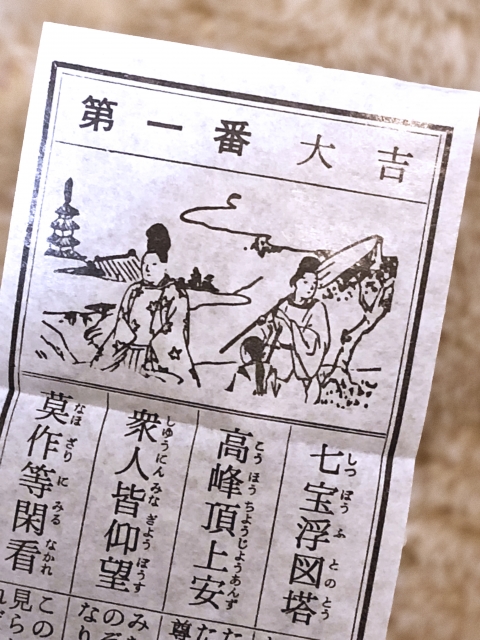 第一番 大吉
七宝浮図塔
しつぽうふとのとう
高峰頂上安
こうほうちようじようあんず
衆人皆仰望
しゆうにんみなぎようぼうす
莫作等閑看
なほざりにみるなかれ